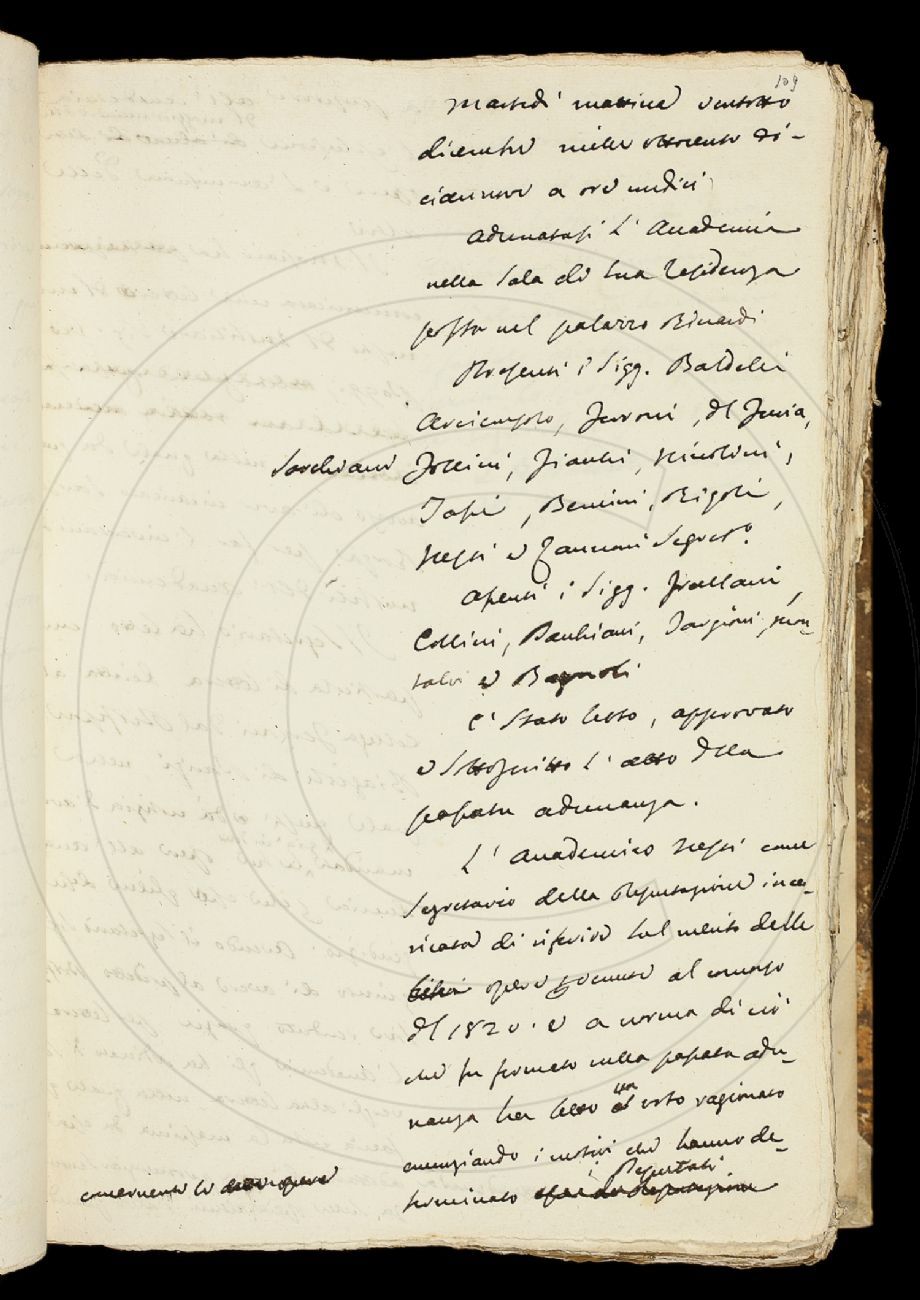 109
Martedì mattina ventotto
dicembre mille ottocento di-
ciannove a ore undici
Adunatasi l'Accademia
nella Sala di Sua Residenza
posta nel palazzo Rinardi
Presenti i Sigg. Baldelli
Arciconsolo, Ferroni, Del Furia,
Sarchiani
Follini, Fiacchi, Niccolini,
Tassi, Bencini, Rigoli,
Nessi e Zannoni Segret.º
Assenti i Sigg. Frullani,
Collini, Targioni, Mon-
talvi e Bagnoli
È stato letto, approvato
e sottoscritto l'atto della
passata adunanza.
L'Accademico Nessi come
Segretario della Deputazione inca-
ricata di riferire sul merito delle
opere venute al concorso
del 1820. e a norma di ciò
che fu fermato nella passata adu-
nanza ha letto un voto ragionato
enunziando i motivi che hanno de-
terminato i Deputati
concernente le opere